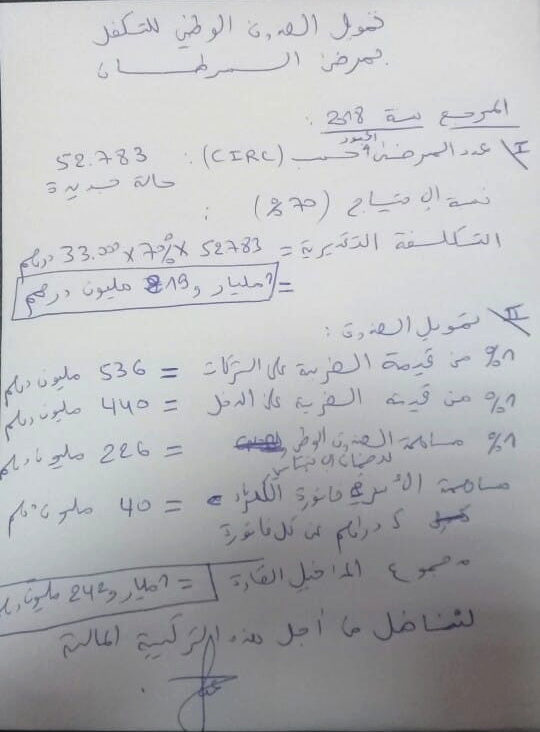 تمويل الصندوق الوطني للتكفل
بمرض الســرطــان
المرجع سنة 2018 :
I عدد المرضى الجدد حسب (CIRC) : 52.783
حالة جديدة
نسبة الإحتياج (70%) :
التكلفة التقديرية = 52783 x 70% x 33.000 درهم
= 1 مليار و 219 مليون درهم
II تمويل الصندوق :
1% من قيمة الضريبة على الشركات = 536 مليون درهم
1% من قيمة الضريبة على الدخل = 440 مليون درهم
1% مساهمة الصندوق الوطني = 226 مليون درهم
للضمان الاجتماعي
مساهمة الأسر في فاتورة الكهرباء = 40 مليون درهم
درهم عن كل فاتورة
مجموع المداخيل القارة = 1 مليار و 242 مليون درهم
لنناضل من أجل هذه التركيبة المالية